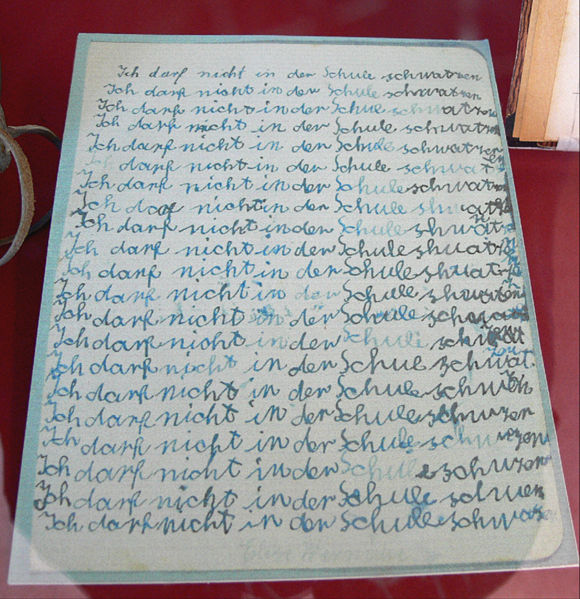 Ich darf nicht in der Schule schwatzen
Ich darf nicht in der Schule schwatzen
Ich darf nicht in der Schule schwatzen
Ich darf nicht in der Schule schwatzen
Ich darf nicht in der Schule schwatzen
Ich darf nicht in der Schule schwatzen
Ich darf nicht in der Schule schwatzen
Ich darf nicht in der Schule
Ich darf nicht in der Schule
Ich darf nicht in der Schule
Ich darf nicht in der Schule
Ich darf nicht in der Schule
Ich darf nicht in der Schule
Ich darf nicht in der Schule
Ich darf nicht in der Schule
Ich darf nicht in der Schule
Ich darf nicht in der Schule
Ich darf nicht in der Schule
Ich darf nicht in der Schule
Ich darf nicht in der Schule
Ich darf nicht in der Schule